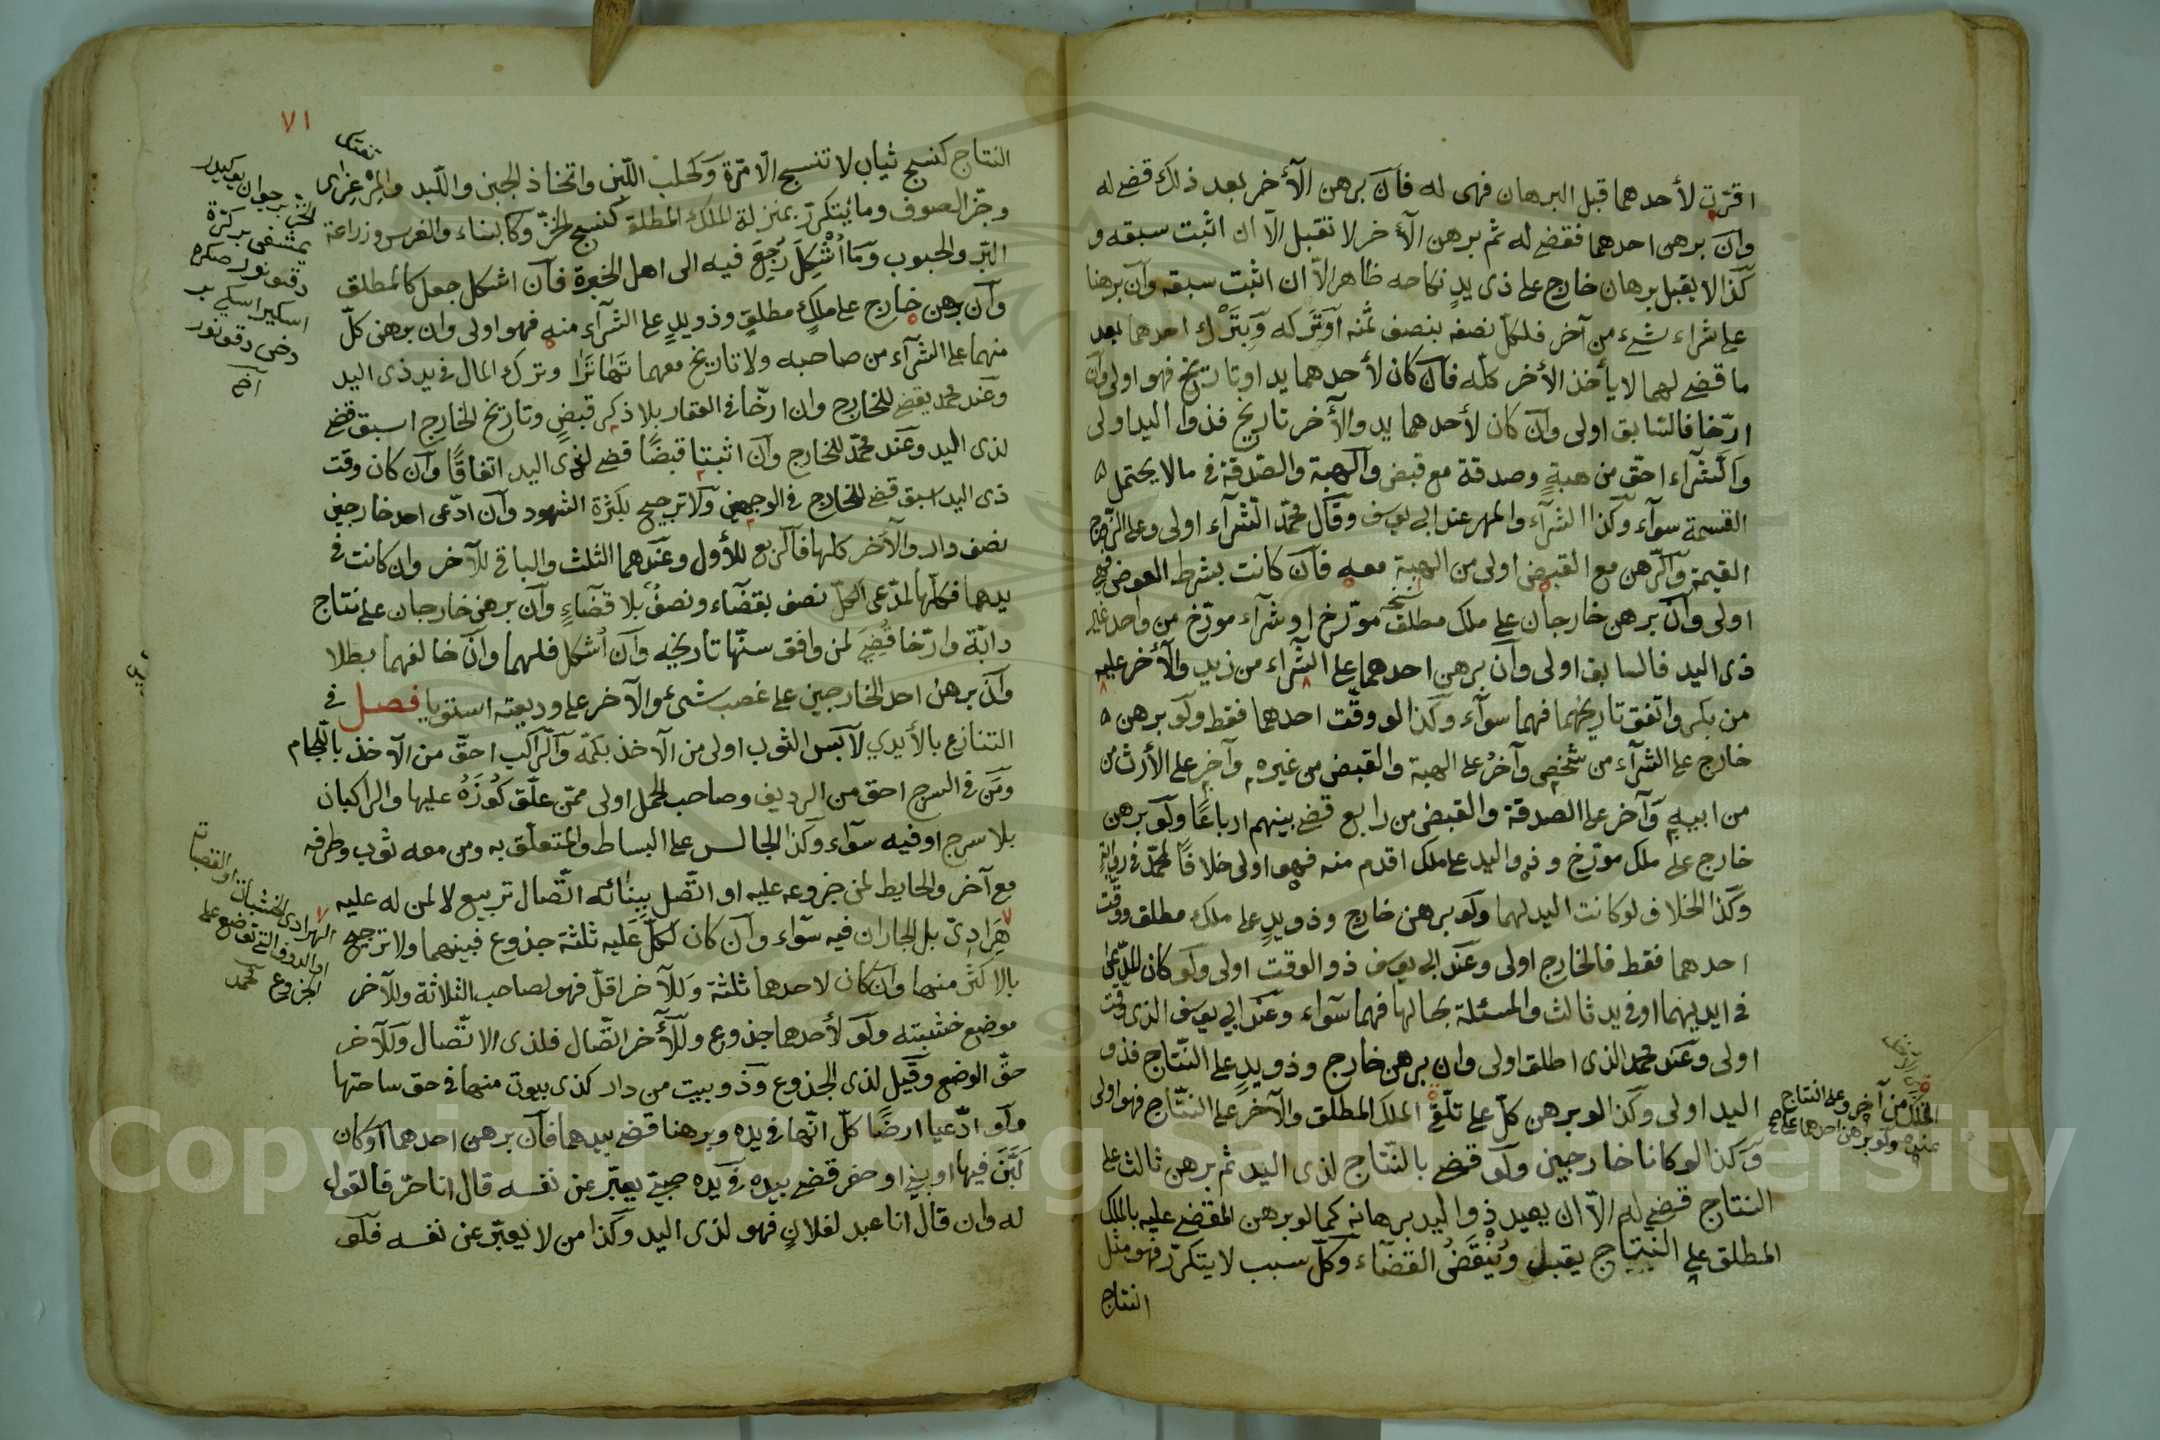 اقرّت لأحدهما قبل البرهان فهى له فان برهن الآخر بعد ذلك قضى له
وان برهن احدهما فقضى له ثم برهن الآخر لا تقبل الاّ ان اثبت سبقه و
كذا لا يقبل برهان خارج على ذى يدٍ نكاحه ظاهر الاّ ان اثبت سبقه وان برهنا
على شراء شىء من آخر فلكلّ نصفه بنصف ثمنه او تركه وبترك احدهما بعد
ما قضى لهما لا يأخذ الأخر كلّه فان كان لأحدهما يد او تاريخ فهو اولى وان
ارّخا فالسّابق اولى وان كان لأحدهما يد والآخر تاريخ فذوا اليد اولى
والشّراء احقّ من هبةٍ وصدقة مع قبض والهبة والصّدقة فى ما لا يحتمل
القسمة سوآء وكذا الشرآء والمهر عند ابى يوسف وقال محمّد الشّرآء اولى وعلى الزّوج
القيمة والرّهن مع القبض اولى من الهبة معه فان كانت بشرط العوض فهى
اولى وان برهن خارجان على ملك مطلق مورّخ او شرآء مورّخ من واحد غير
ذى اليد فالسابق اولى وان برهن احدهما على الشّراء من زيد والأخر عليه
من بكر واتفق تاريخهما فهما سوآء وكذا لو وقّت احدهما فقط ولو برهن
خارج على الشرآء من شخص وآخر على الهبة والقبض من غيره وآخر على الأرث من
من ابيه وآخر على الصدقة والقبض من رابع قضى بينهم ارباعًا ولو برهن
خارج على ملك مورّخ وذو اليد على ملك اقدم منه فهو اولى خلافًا لمحمّد فى رواية
وكذا الخلاف لو كانت اليد لهما ولو برهن خارج وذو يدٍ على ملك مطلق ووقّت
احدهما فقط فالخارج اولى وعند ابى يوسف ذو الوقت اولى ولو كان المدّعى
فى ايديهما او فى يد ثالث والمسئلة بحالها فهما سوآء وعند ابى يوسف الذى وقّت
اولى وعند محمد الذى اطلق اولى وان برهن خارج وذو يدٍ على النّتاج فذو
اليد اولى وكذا لو برهن كلّ على تلقّى الملك المطلق والآخر على النتّاج فهو اولى
وكذا لو كانا خارجين ولو قضى بالنّتاج لذى اليد ثم برهن ثالث على
النتاج قضى له الاّ ان يعيد ذو اليد برهانه كما لو برهن المقضى عليه بالملك
المطلق على النتاج يقبل ويُنقَضُ القضآء وكلّ سبب لا يتكرّر فهو مثل
النتاج
الملك من آخر وعلى النتاج
عنده ولو برهن احدهما على
٧١
النتاج كنسج ثياب لا تنسج الاّ مرّة وكحلب اللّبن واتخاذ الجبن واللّبد والمِرْعِزاى
وجزّ الصوف وما يتكرّر بمنزلة الملك المطلق كنسج الخزّ وكالبناء والغرس وزراعة
البّر والحبوب وما اُشْكِلَ رُجِعَ فيه الى اهل الخبرة فان اشكل جعل كالمطلق
وان برهن خارج على ملكٍ مطلقٍ وذو يدٍ على الشّرآء منه فهو اولى وان برهن كلّ
منهما على الشّرآء من صاحبه ولا تاريخ معهما تَهَاتَرَا وترك المال فى يد ذى اليد
وعند محمد يقضى للخارج وان ارّخا فى العقار بلا ذكر قبضٍ وتاريخ الخارج اسبق قضى
لذى اليد وعند محمّد للخارج وان اثبتا قبضًا قضى لذى اليد اتفاقًا وان كان وقت
ذى اليد اسبق قضى للخارج فى الوجهين ولا ترجيح بكثرة الشهود وان ادّعى احد خارجين
نصف دار والآخر كلها فالربع للأول وعندهما الثلث والباقى للآخر وان كانت فى
يدهما فكلّها لمدّعى الكلّ نصف بقضآء ونصفٌ بلا قضآءٍ وان برهن خارجان على نتاج
دابّة وارّخا قُضِىَ لمن وافق سنّها تاريخه وان اُشكل فلهما وان خالفهما بطلا
وان برهن احد الخارجين على غصب شىء والآخر على وديعته استويا فصل فى
التنازع بالأيدي لابس الثوب اولى من الآخذ بكمّه والرّاكب احقّ من الآخذ باللّجام
ومَن فى السرج احق من الرديف وصاحب الحمل اولى ممّن علّق كُوزَهُ عليها والراكبان
بلا سرج او فيه سوآء وكذا الجالس على البساط والمتعلّق به ومن معه ثوب وطرفه
مع آخر والحايط لمن جزوعه عليه او اتّصل ببنائه اتّصال تربيع لا لمن له عليه
هرادىّ بل الجاران فيه سوآء وان كان لكلّ عليه ثلثة جذوع فبينهما ولا ترجيح
بالاكثر منها وان كان لاحدهما ثلثة وللآخر اقلّ فهو لصاحب الثلاثة وللآخر
موضع خشبته ولو لأحدهما جذوع وللآخر اتّصال فلذى الاتّصال وللآخر
حقّ الوضع وقيل لذى الجذوع وذو بيت من دار كذى بيوت منها فى حق ساحتها
ولو ادّعيا ارضًا كلّ انّها فى يده وبرهنا قضى بيدهما فان برهن احدهما او كان
لَبَّنَ فيها او بنى او حفر قضى بيده فى يده صبىّ يعبّر عن نفسه قال انا حرّ فالقول
له وان قال انا عبد لفلانٍ فهو لذى اليد وكذا من لا يُعبّر عن نفسه فلو
الهرادى الخشبات او القصبات
التى توضع على
الجزوع
Copyright © King Saud University